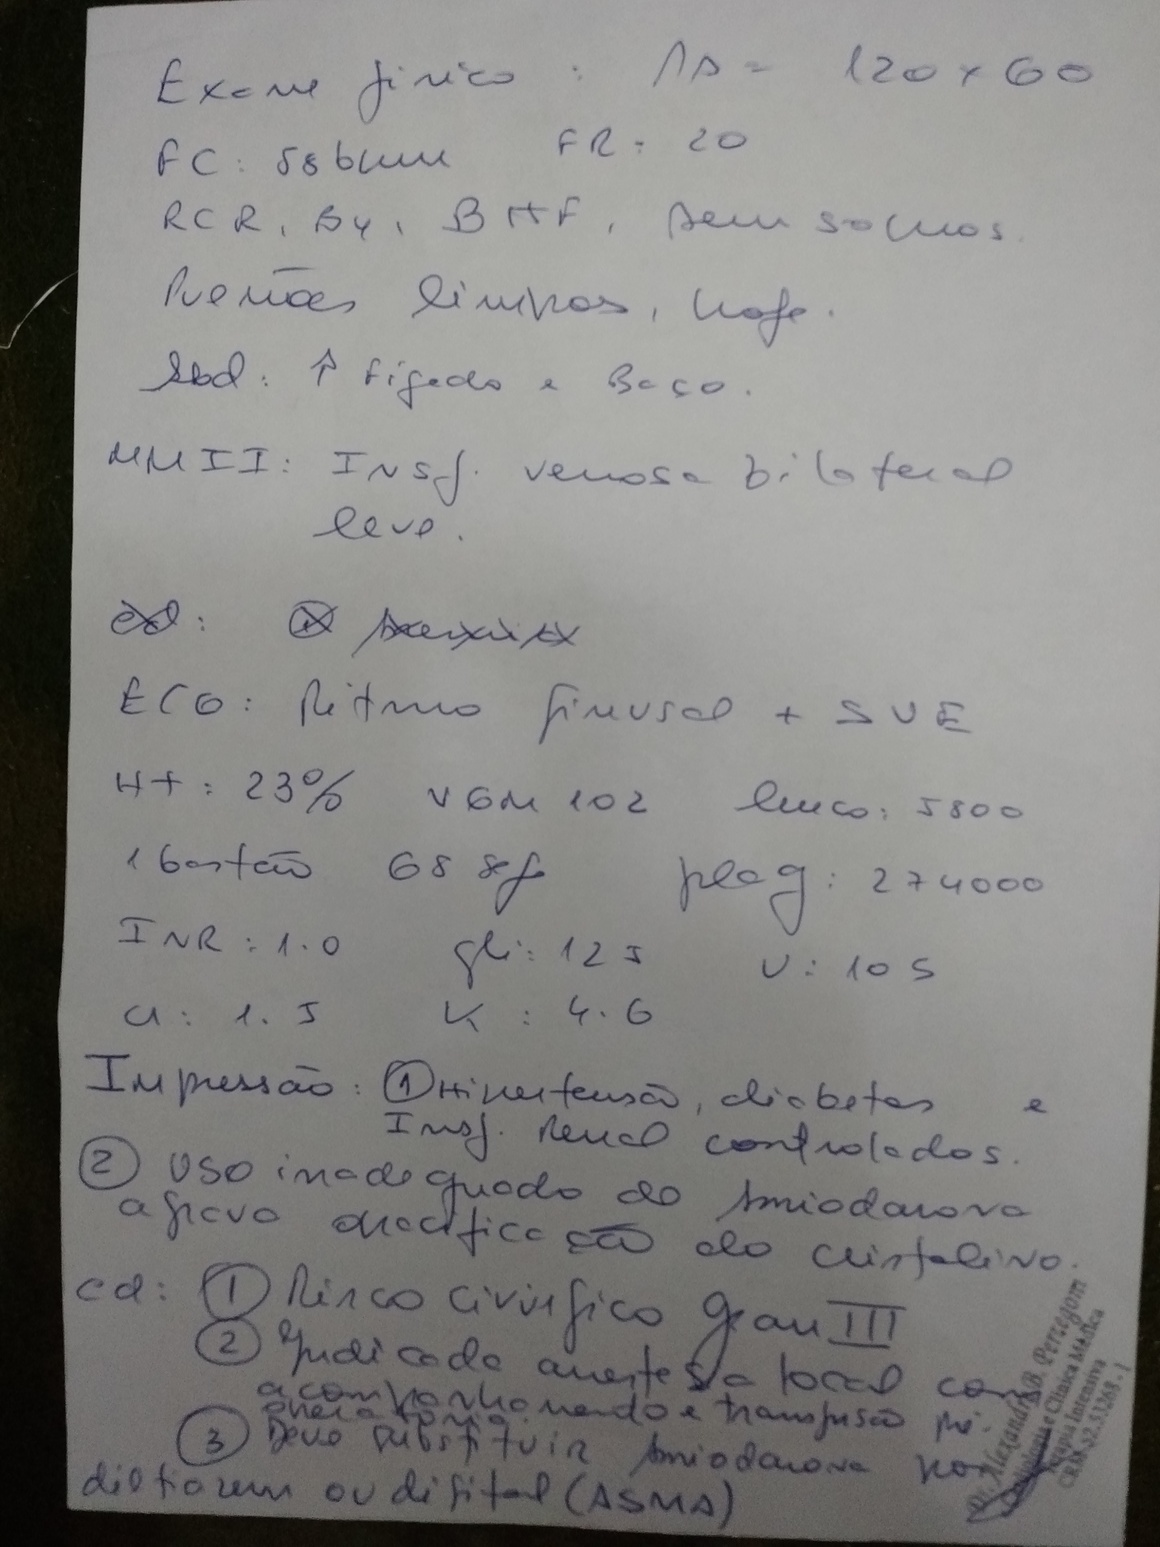 Exame físico : PA = 120 x 60
FC: 58 bcmm FR: 20
RCR, B4, BHF, sem sopros.
Pulmões limpos, hoje.
Abd: ↑ Fígado e Baço.
MMII: Insf. venosa bilateral
leve.
ECG: Ritmo sinusal + SVE
HT: 23% VGM 102 leuco: 5800
1 bastão 68 seg plaq: 274000
INR: 1.0 gli: 125 U: 105
Cr: 1.5 K: 4.6
Impressão: ① Hipertensão, diabetes e
Insf. Renal controlados.
② Uso inadequado do Amiodarona
agrava opacificação do cristalino.
cd: ① Risco cirúrgico grau III
② Indicada anestesia local com
acompanhamento e transfusão pré.
operatória.
③ Deve substituir Amiodarona por
diltiazem ou digital (ASMA)
Dr. Alexandre B. Persegom
Clínica Médica
Terapia Intensiva
CRM 52.53268-1